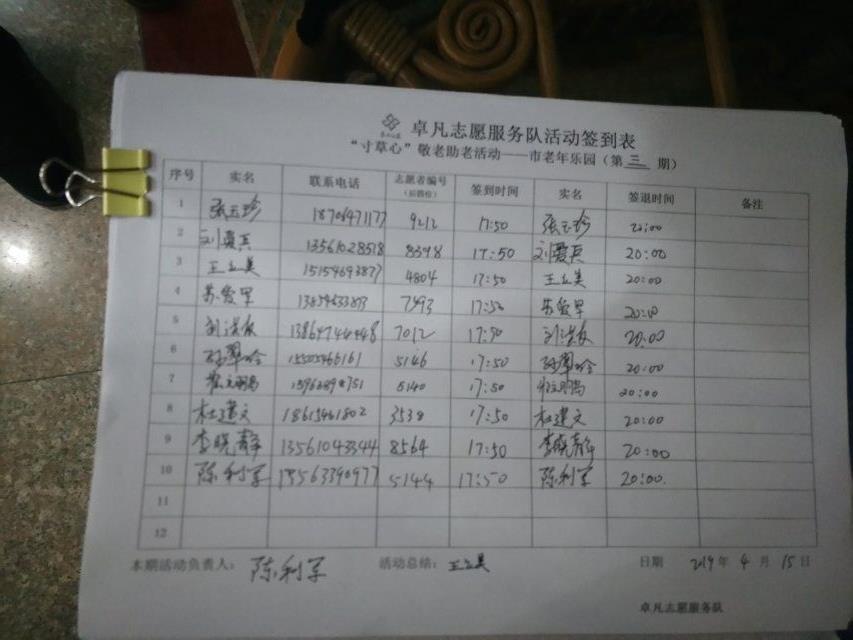 卓凡志愿服务队活动签到表
“寸草心”敬老助老活动——市老年乐园（第 三 期）
序号 实名 联系电话 志愿者编号（后四位） 签到时间 实名 签退时间 备注
1 张玉珍 18706471177 9212 17:50 张玉珍 20:00
2 刘爱兵 13561028518 8398 17:50 刘爱兵 20:00
3 王立美 15154693877 4804 17:50 王立美 20:00
4 苏俊军 7393 17:50 苏俊军 20:00
5 刘洪 7012 17:50 刘洪 20:00
6 15505466161 5146 17:50 20:00
7 5140 17:50 20:00
8 杜建文 18615461802 3538 17:50 杜建文 20:00
9 李晓静 13561043344 8564 17:50 李晓静 20:00
10 陈利军 13563390977 5144 17:50 陈利军 20:00.
11
12
本期活动负责人： 陈利军 活动总结： 王立美 日期 2019 年 4 月 15 日
卓凡志愿服务队